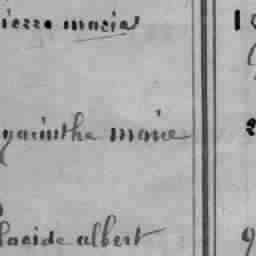 ierre marie
yacinthe marie
lacide albert